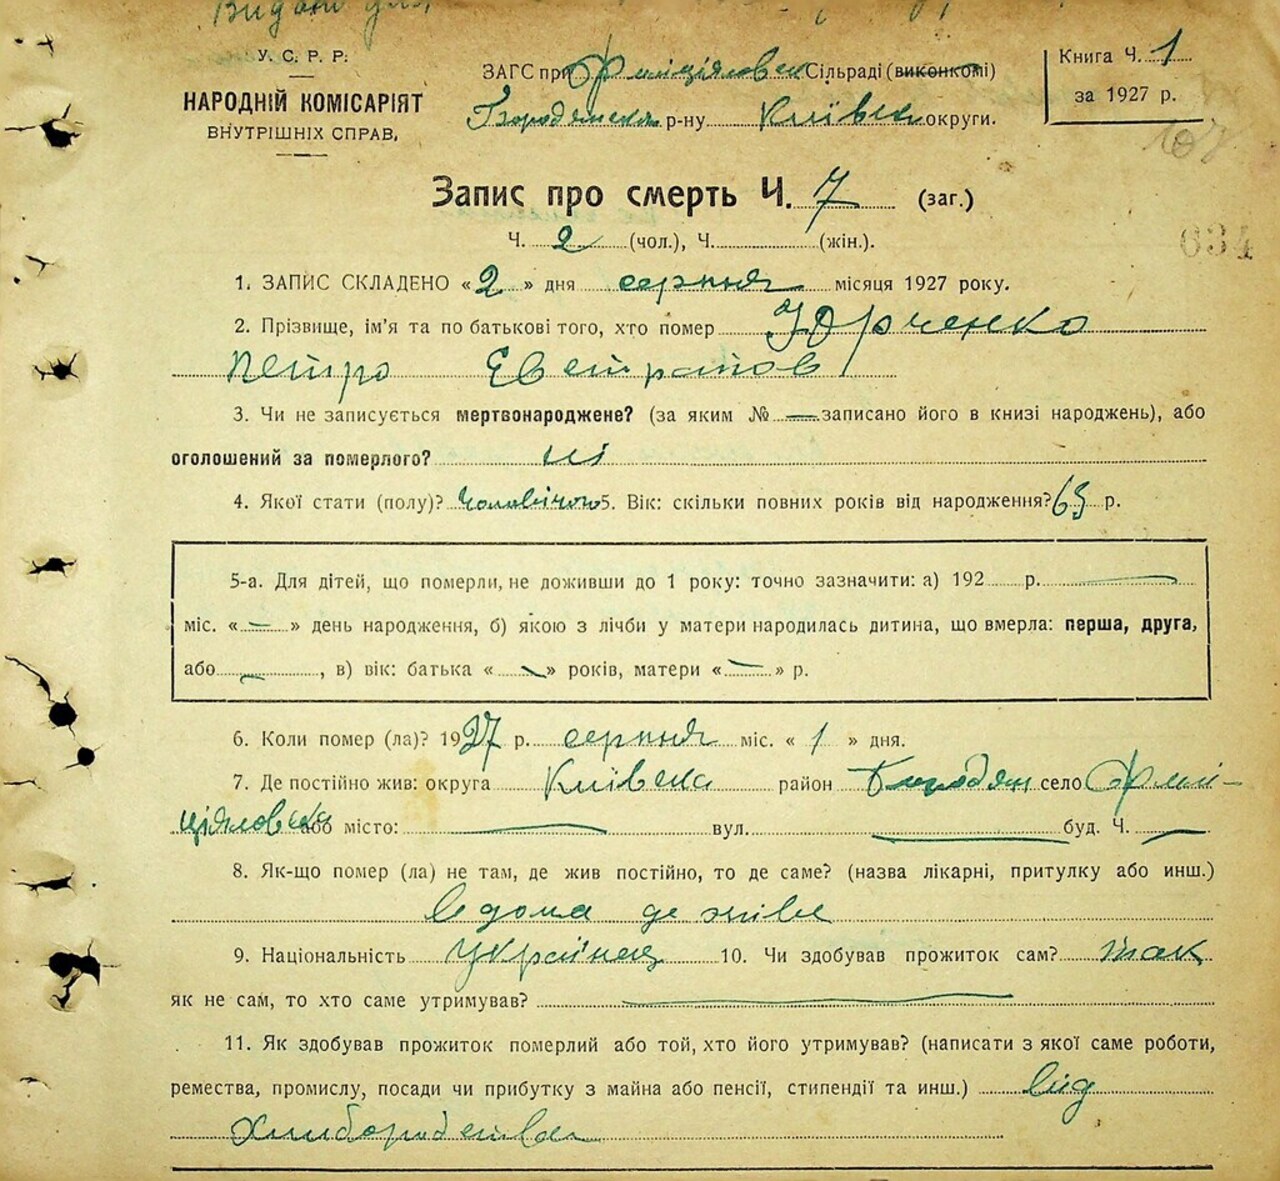 Видано для
У. С. Р. Р.
НАРОДНІЙ КОМІСАРІЯТ
ВНУТРІШНІХ СПРАВ,
ЗАГС при Сільраді (виконкомі)
Бородянськ р-ну Київськ округи.
Книга Ч. 1
за 1927 р.
634
Запис про смерть Ч. 7 (заг.)
Ч. 2 (чол.), Ч. (жін.).
1. ЗАПИС СКЛАДЕНО «2» дня серпня місяця 1927 року.
2. Прізвище, ім'я та по батькові того, хто помер Юрченко
Петро Евстратов
3. Чи не записується мертвонароджене? (за яким № — записано його в книзі народжень), або
оголошений за померлого? ні
4. Якої стати (полу)? чоловічого 5. Вік: скільки повних років від народження? р.
5-а. Для дітей, що померли, не доживши до 1 року: точно зазначити: а) 192 р. —
міс. «—» день народження, б) якою з лічби у матери народилась дитина, що вмерла: перша, друга,
або —, в) вік: батька «—» років, матери «—» р.
6. Коли помер (ла)? 1927 р. серпня міс. «1» дня.
7. Де постійно жив: округа Київська район Бородян село
або місто: — вул. — буд. Ч. —
8. Як-що помер (ла) не там, де жив постійно, то де саме? (назва лікарні, притулку або инш.)
вдома де живе
9. Національність українец 10. Чи здобував прожиток сам? так
як не сам, то хто саме утримував? —
11. Як здобував прожиток померлий або той, хто його утримував? (написати з якої саме роботи,
ремества, промислу, посади чи прибутку з майна або пенсії, стипендії та инш.) від